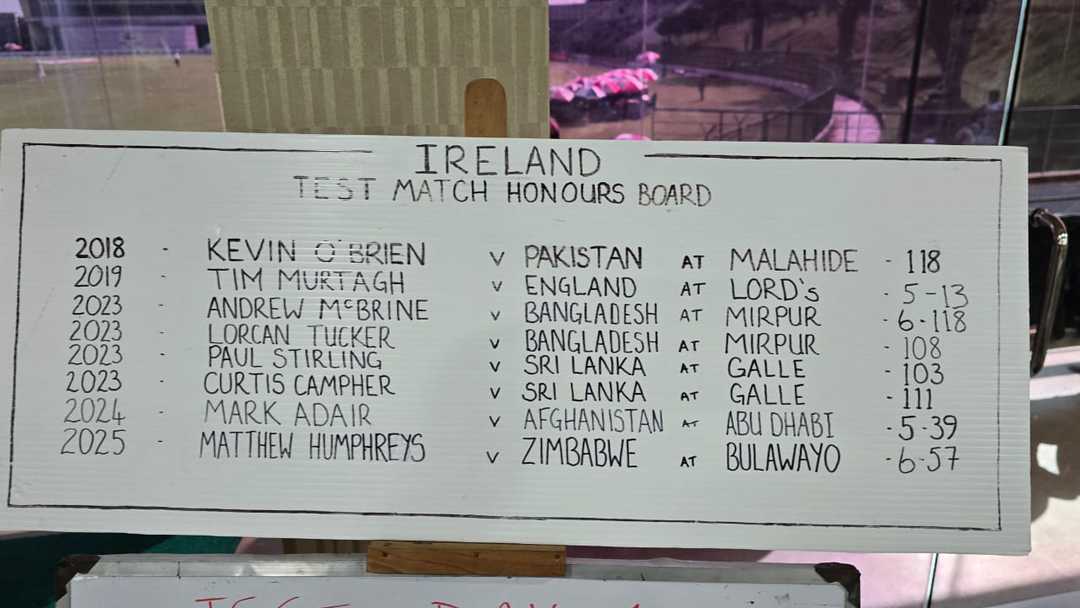 IRELAND
TEST MATCH HONOURS BOARD
2018 - KEVIN O'BRIEN v PAKISTAN AT MALAHIDE - 118
2019 - TIM MURTAGH v ENGLAND AT LORD's - 5-13
2023 - ANDREW McBRINE v BANGLADESH AT MIRPUR - 6-118
2023 - LORCAN TUCKER v BANGLADESH AT MIRPUR - 108
2023 - PAUL STIRLING v SRI LANKA AT GALLE - 103
2023 - CURTIS CAMPHER v SRI LANKA AT GALLE - 111
2024 - MARK ADAIR v AFGHANISTAN AT ABU DHABI - 5-39
2025 - MATTHEW HUMPHREYS v ZIMBABWE AT BULAWAYO - 6-57